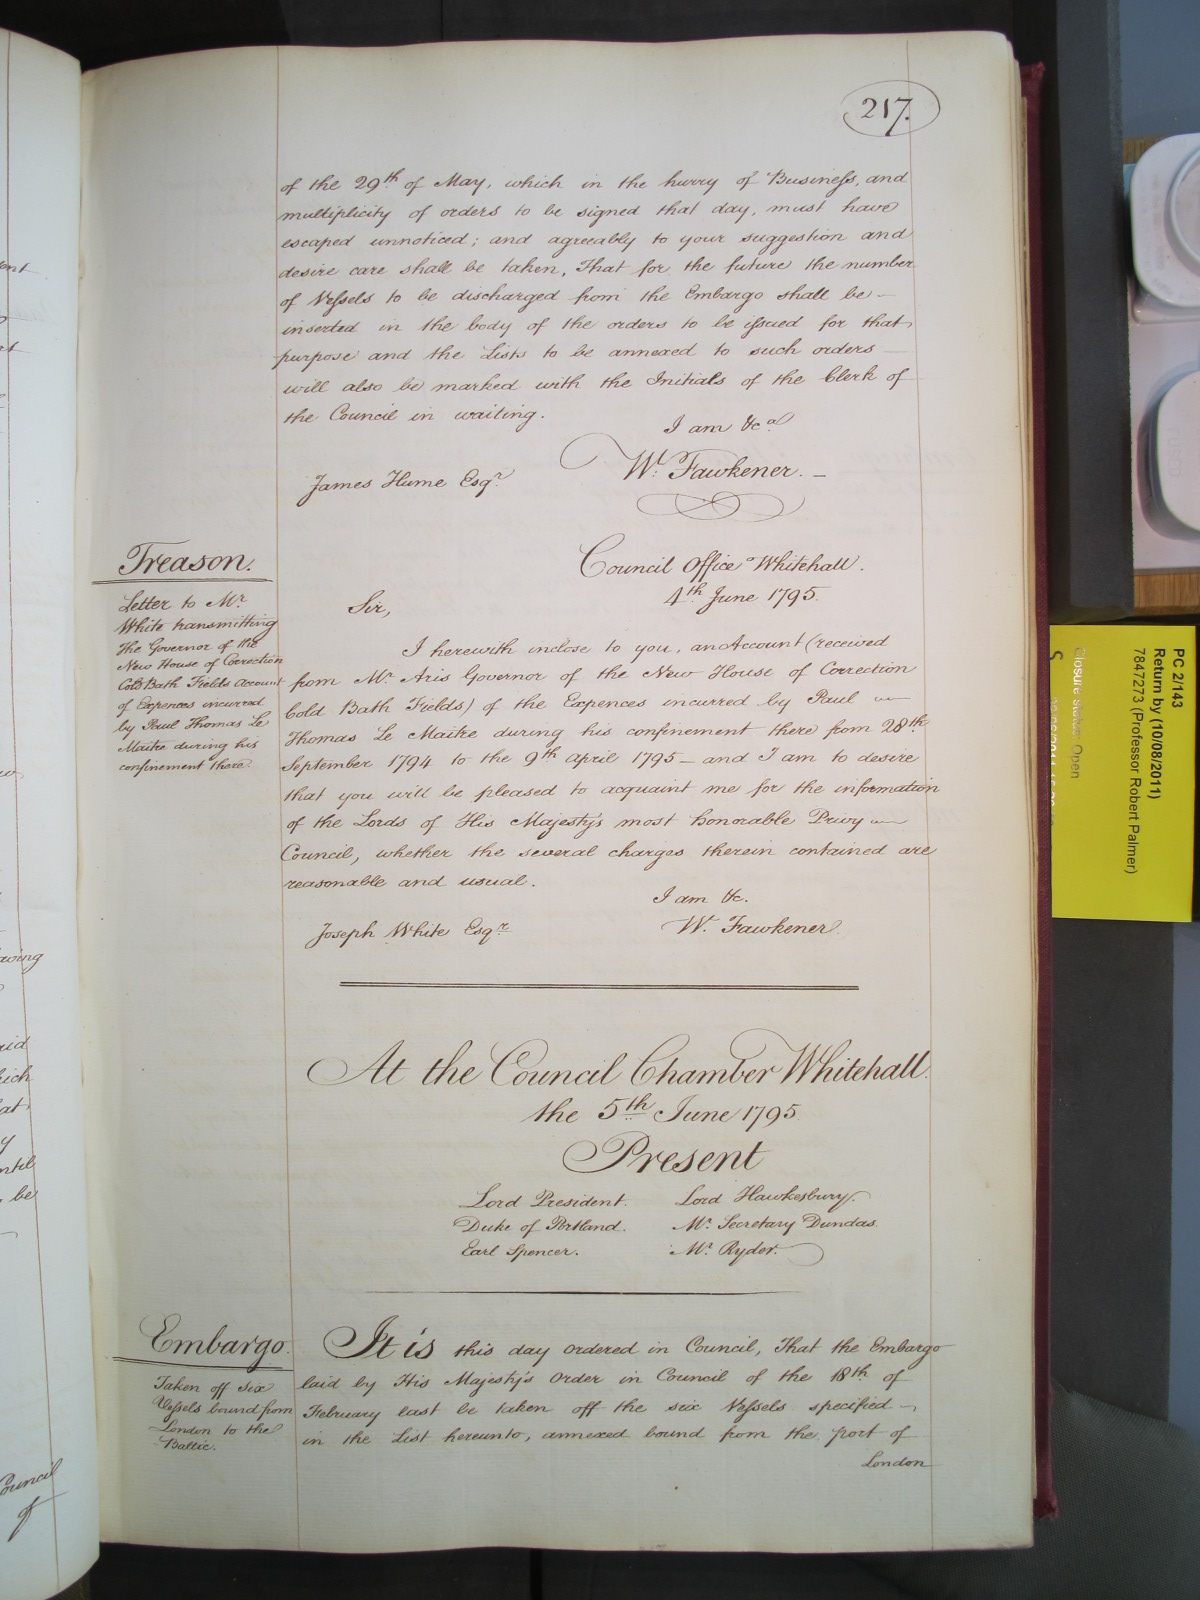 217.
of the 29th of May, which in the hurry of Business, and
multiplicity of orders to be signed that day, must have
escaped unnoticed; and agreeably to your suggestion and
desire care shall be taken, That for the future the number
of Vessels to be discharged from the Embargo shall be
inserted in the body of the orders to be issued for that
purpose and the Lists to be annexed to such orders
will also be marked with the Initials of the Clerk of
the Council in waiting.
I am &ca
James Hume Esqr.
W. Fawkener.
Treason.
Letter to Mr.
White transmitting
the Governor of the
New House of Correction
Cold Bath Fields Account
of Expences incurred
by Paul Thomas Le
Maitre during his
confinement there.
Council Office Whitehall.
4th June 1795.
Sir,
I herewith inclose to you, an Account (received
from Mr. Aris Governor of the New House of Correction
Cold Bath Fields) of the Expences incurred by Paul
Thomas Le Maitre during his confinement there from 28th
September 1794 to the 9th April 1795 — and I am to desire
that you will be pleased to acquaint me for the information
of the Lords of His Majesty's most honorable Privy
Council, whether the several charges therein contained are
reasonable and usual.
I am &c.
Joseph White Esqr.
W. Fawkener.
At the Council Chamber Whitehall.
the 5th June 1795
Present
Lord President. Lord Hawkesbury.
Duke of Portland. Mr. Secretary Dundas.
Earl Spencer. Mr. Ryder.
Embargo.
Taken off six
Vessels bound from
London to the
Baltic.
It is this day ordered in Council, That the Embargo
laid by His Majesty's Order in Council of the 18th of
February last be taken off the six Vessels specified
in the List hereunto, annexed bound from the port of
London
PC 2/143
Return by (10/08/2011)
7847273 (Professor Robert Palmer)
Closure status: Open
ent
aving
hich
at
y
ntil
be
Council
of